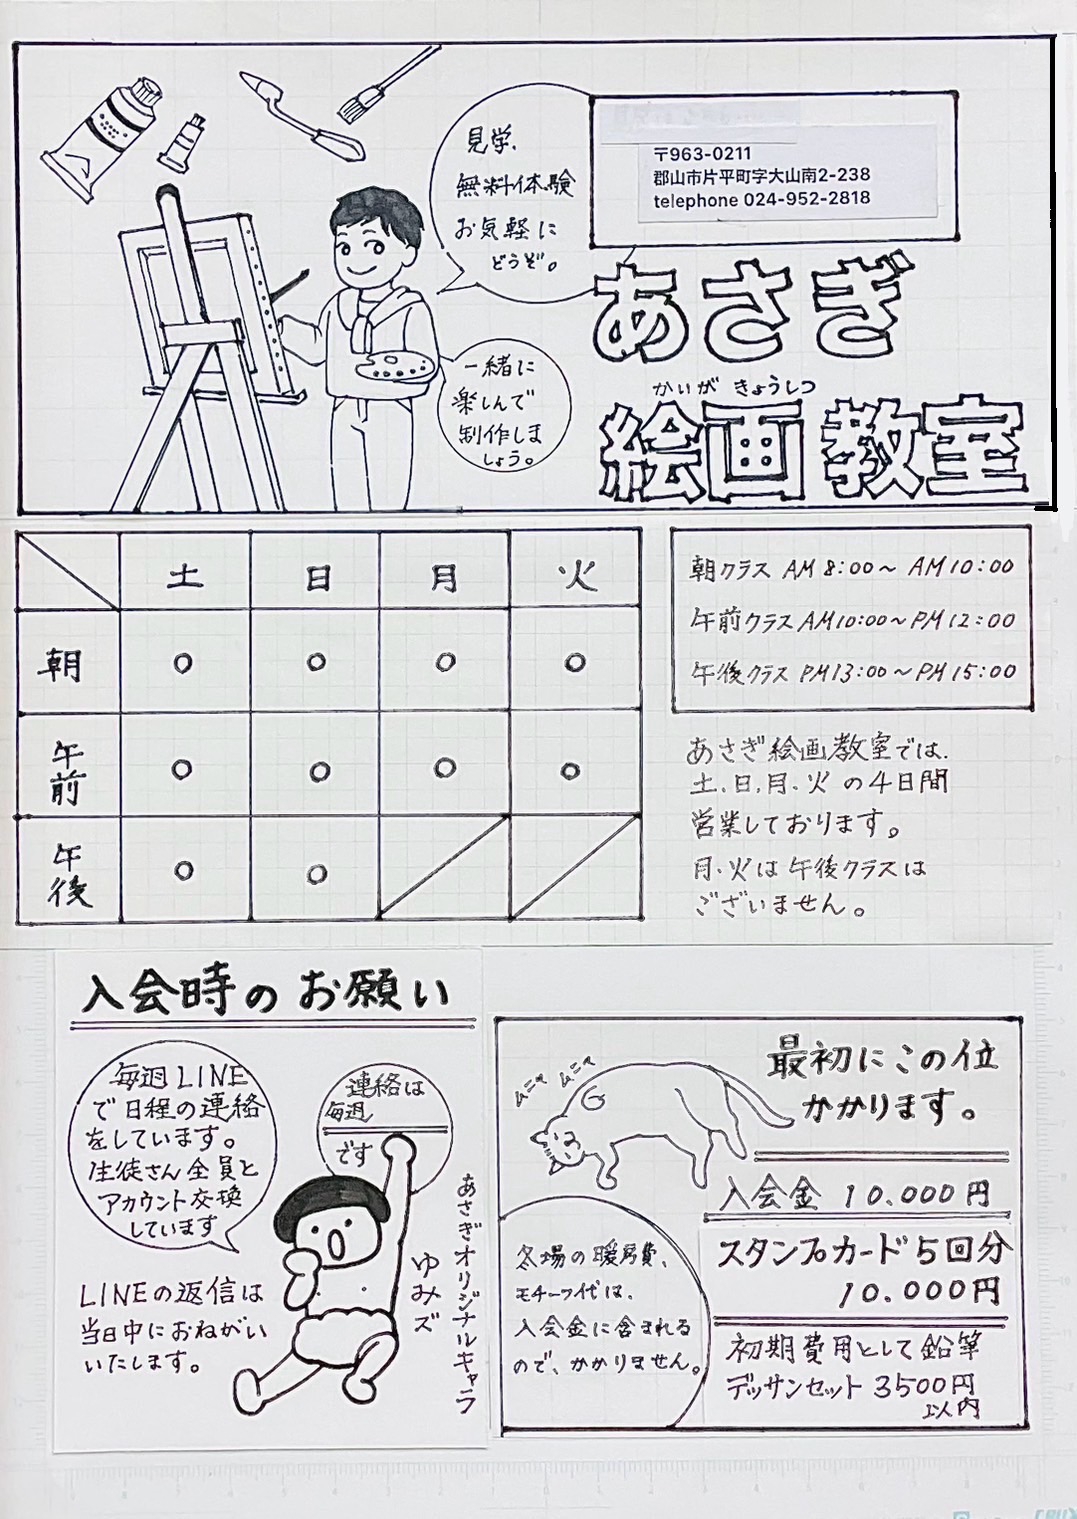 見学、
無料体験
お気軽に
どうぞ。
〒963-0211
郡山市片平町字大山南2-238
telephone 024-952-2818
あさぎ
かいが きょうしつ
絵画教室
一緒に
楽しんで
制作しま
しょう。
土 日 月 火
朝 ○ ○ ○ ○
午前 ○ ○ ○ ○
午後 ○ ○
朝クラス AM 8:00〜 AM 10:00
午前クラス AM10:00〜PM 12:00
午後クラス PM13:00〜PM 15:00
あさぎ絵画教室では、
土、日、月、火 の4日間
営業しております。
月、火は午後クラスは
ございません。
入会時のお願い
毎週LINE
で日程の連絡
をしています。
生徒さん全員と
アカウント交換
しています
連絡は
毎週
です
LINEの返信は
当日中におねがい
いたします。
あさぎオリジナルキャラ
ゆみズ
ムニャ ムニャ
最初にこの位
かかります。
入会金 10.000円
スタンプカード5回分
10.000円
初期費用として鉛筆
デッサンセット 3500円
以内
冬場の暖房費、
モチーフ代は、
入会金に含まれる
ので、かかりません。